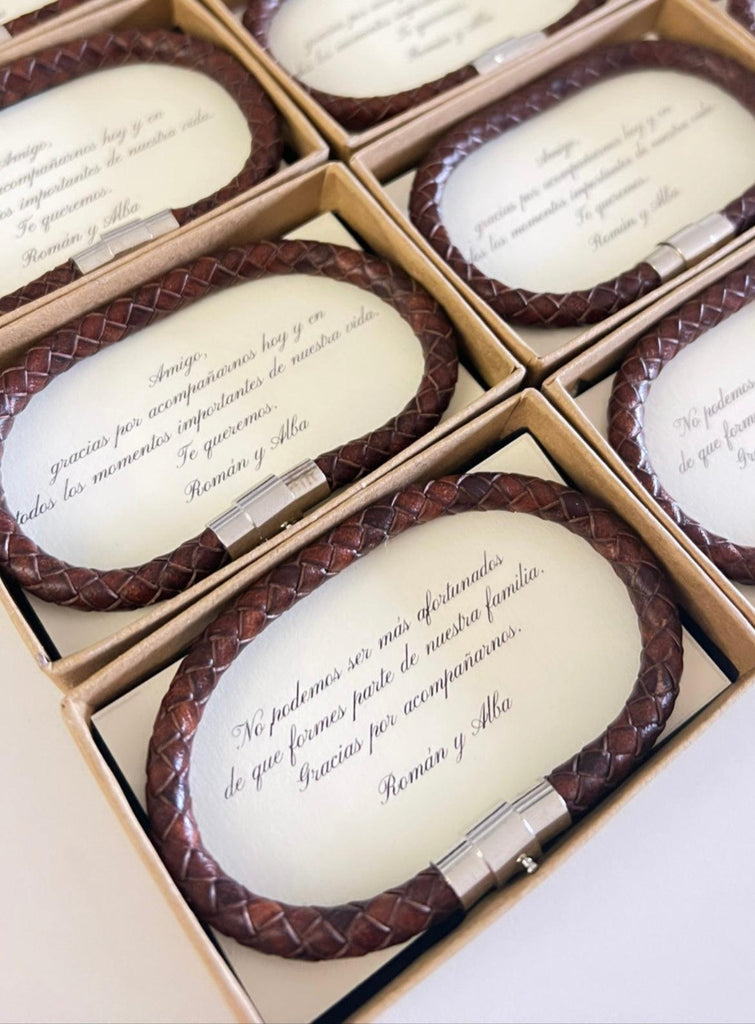 gracias por acompañarnos hoy y en
los momentos importantes de
Román y Alba
Amigo,
acompañarnos hoy y en
s momentos importantes de nuestra vida.
Te queremos.
Román y Alba
Amigo,
gracias por acompañarnos hoy y en
los momentos importantes de nuestra vida.
Te queremos.
Román y Alba
Amigo,
gracias por acompañarnos hoy y en
todos los momentos importantes de nuestra vida.
Te queremos.
Román y Alba
No podemos
de que form
Gra
No podemos ser más afortunados
de que formes parte de nuestra familia.
Gracias por acompañarnos.
Román y Alba